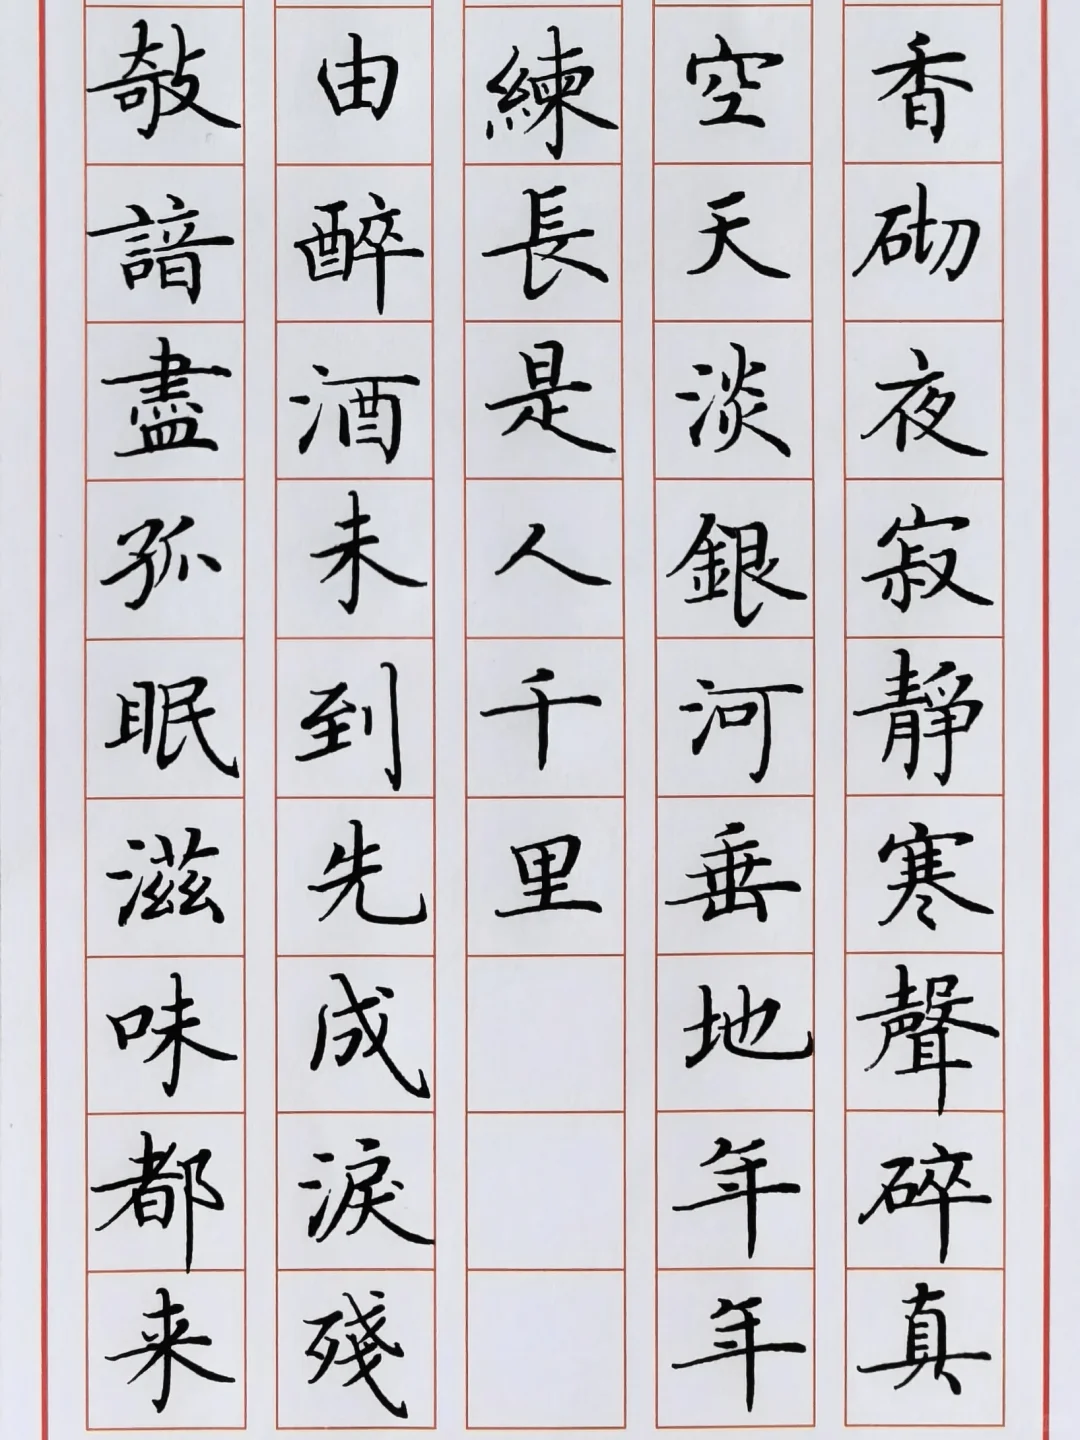 香砌夜寂靜寒聲碎真
空天淡銀河垂地年年
練長是人千里
由醉酒未到先成淚殘
敧諳盡孤眠滋味都来